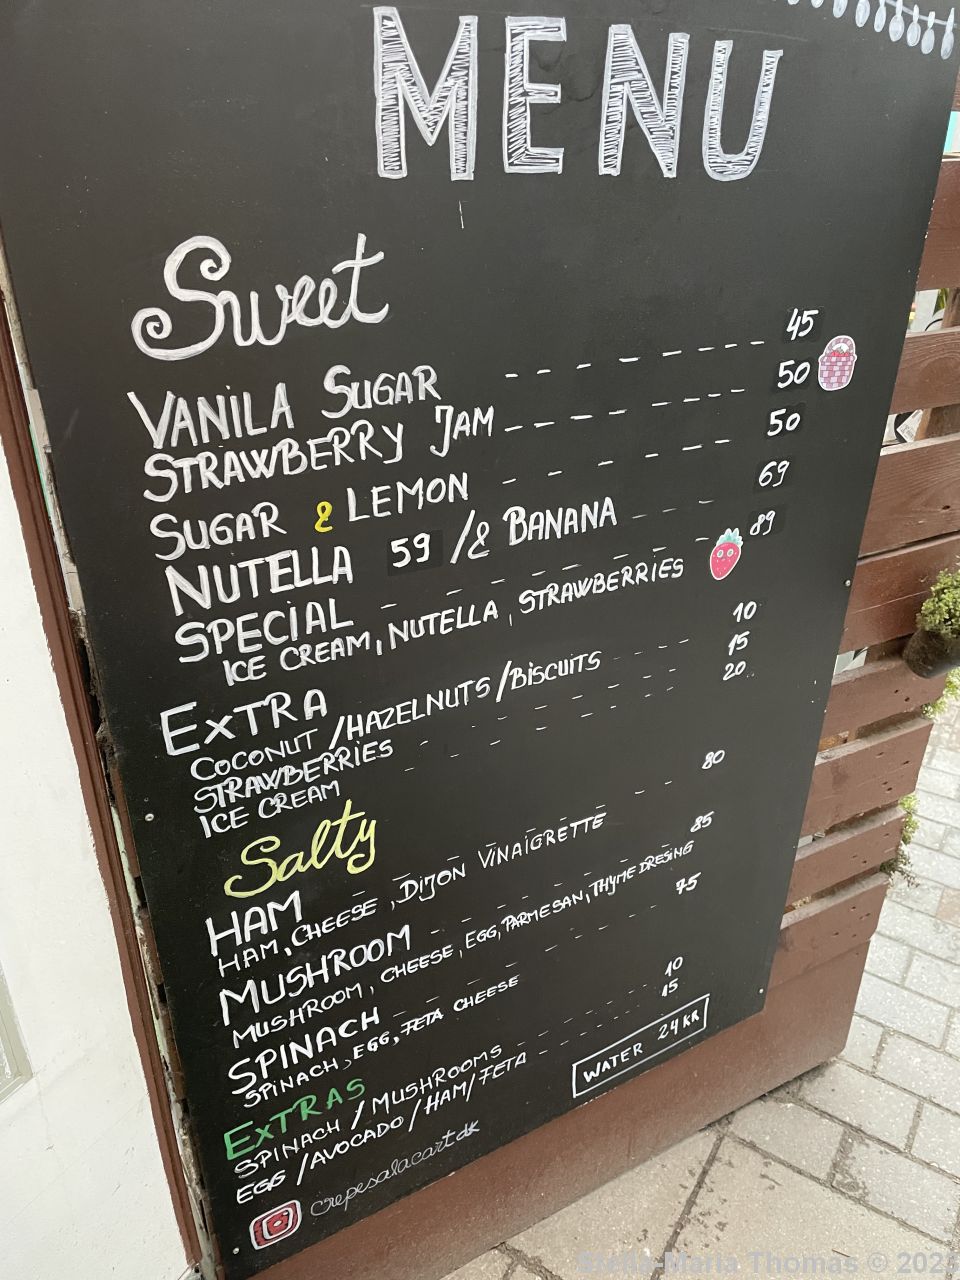 MENU
Sweet
VANILA SUGAR - - - - - - - - 45
STRAWBERRY JAM - - - - - - - - 50
SUGAR & LEMON - - - - - - 50
NUTELLA 59 /& BANANA - - - 69
SPECIAL - - - - - - - - 89
ICE CREAM, NUTELLA, STRAWBERRIES
EXTRA 10
COCONUT /HAZELNUTS/BISCUITS - - - - 15
STRAWBERRIES - - - - - - - 20
ICE CREAM
Salty
HAM - - - - - - 80
HAM, CHEESE, DIJON VINAIGRETTE
MUSHROOM - - - - - - 85
MUSHROOM, CHEESE, EGG, PARMESAN, THYME DRESING
SPINACH - - - - - - 75
SPINACH, EGG, FETA CHEESE
EXTRAS
SPINACH / MUSHROOMS - - - - - - 10
EGG /AVOCADO/HAM/FETA - - - - - - 15
WATER 24 KR
crepesalacart.dk
Stella-Maria Thomas © 2023